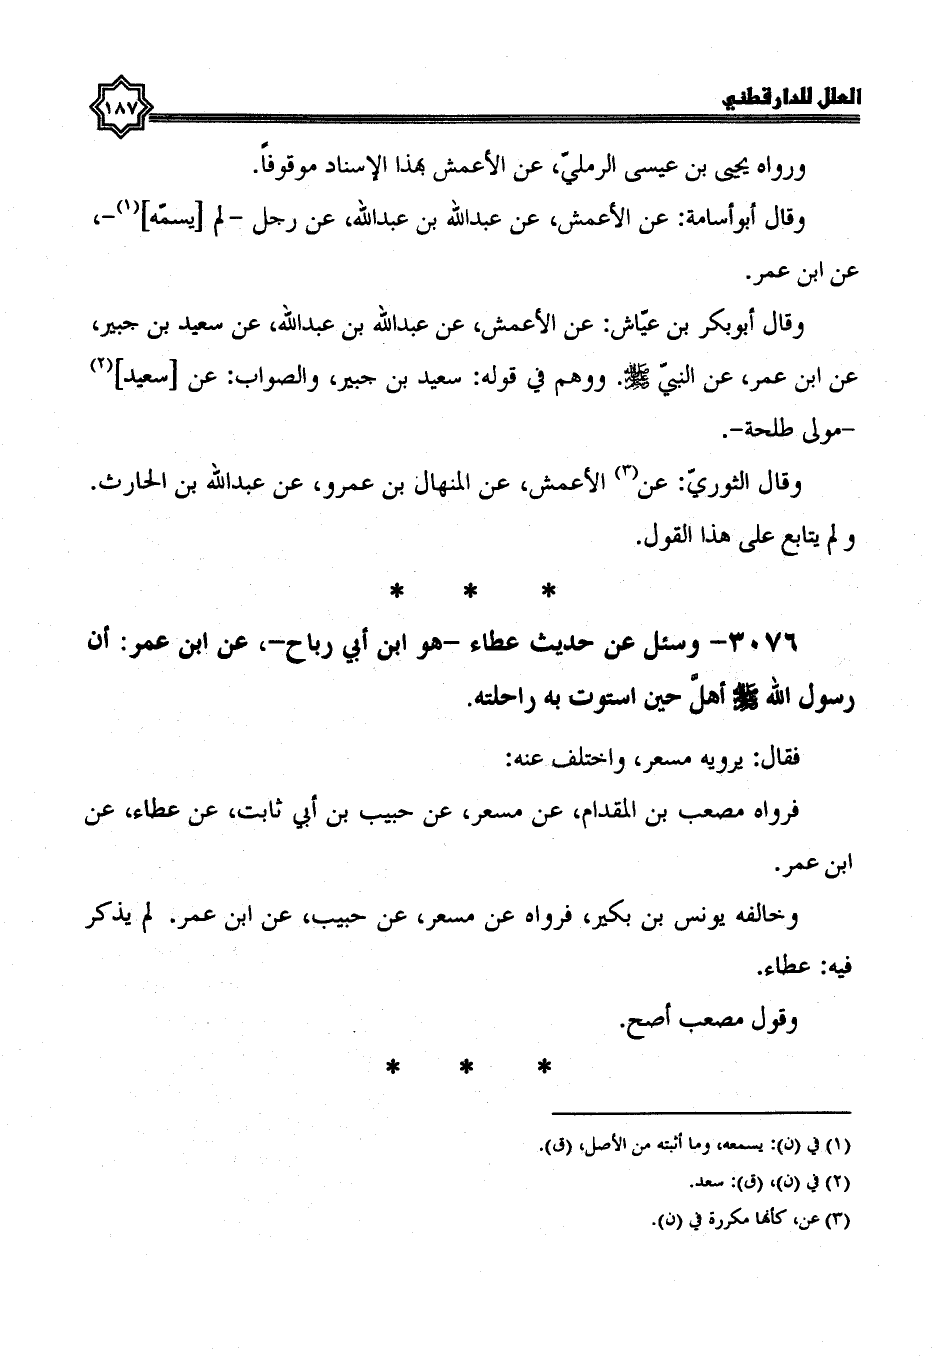 العلل للدارقطني
١٨٧
ورواه يحيى بن عيسى الرمليّ، عن الأعمش بهذا الإسناد موقوفاً.
وقال أبوأسامة: عن الأعمش، عن عبدالله بن عبدالله، عن رجل –لم [يسمّه](١)–،
عن ابن عمر.
وقال أبوبكر بن عيّاش: عن الأعمش، عن عبدالله بن عبدالله، عن سعيد بن جبير،
عن ابن عمر، عن النبيّ ﷺ. ووهم في قوله: سعيد بن جبير، والصواب: عن [سعيد](٢)
–مولى طلحة–.
وقال الثوريّ: عن(٣) الأعمش، عن المنهال بن عمرو، عن عبدالله بن الحارث.
و لم يتابع على هذا القول.
* * *
٣٠٧٦– وسئل عن حديث عطاء –هو ابن أبي رباح–، عن ابن عمر: أن
رسول الله ﷺ أهلَّ حين استوت به راحلته.
فقال: يرويه مسعر، واختلف عنه:
فرواه مصعب بن المقدام، عن مسعر، عن حبيب بن أبي ثابت، عن عطاء، عن
ابن عمر.
وخالفه يونس بن بكير، فرواه عن مسعر، عن حبيب، عن ابن عمر. لم يذكر
فيه: عطاء.
وقول مصعب أصح.
* * *
(١) في (ن): يسمعه، وما أثبته من الأصل، (ق).
(٢) في (ن)، (ق): سعد.
(٣) عن، كأنها مكررة في (ن).